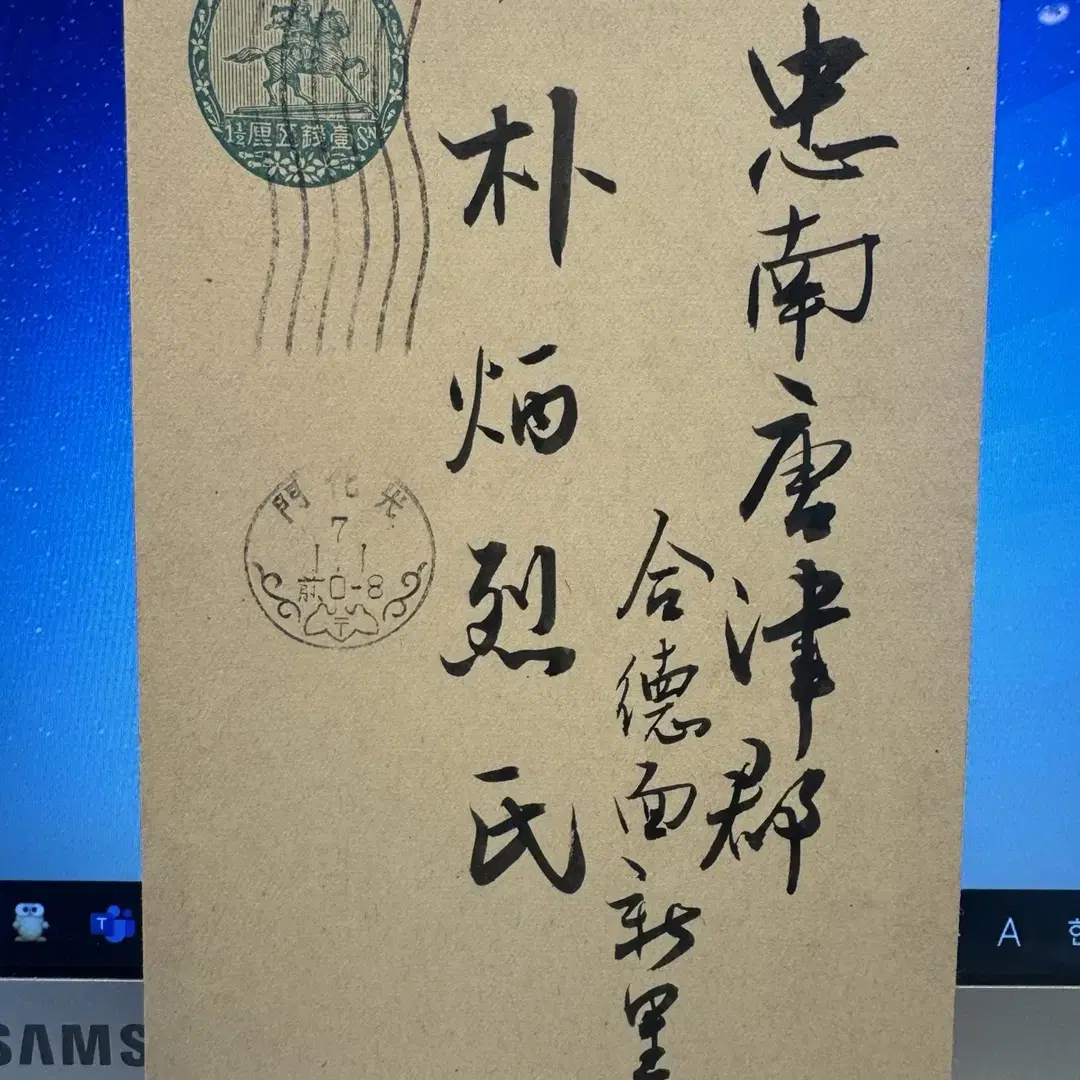 忠南唐津郡
合德面新里
朴炳烈氏
1½厘五錢壹Sⁿ
光化門
7
1.1
前0-8
〒
SAMS
T
A